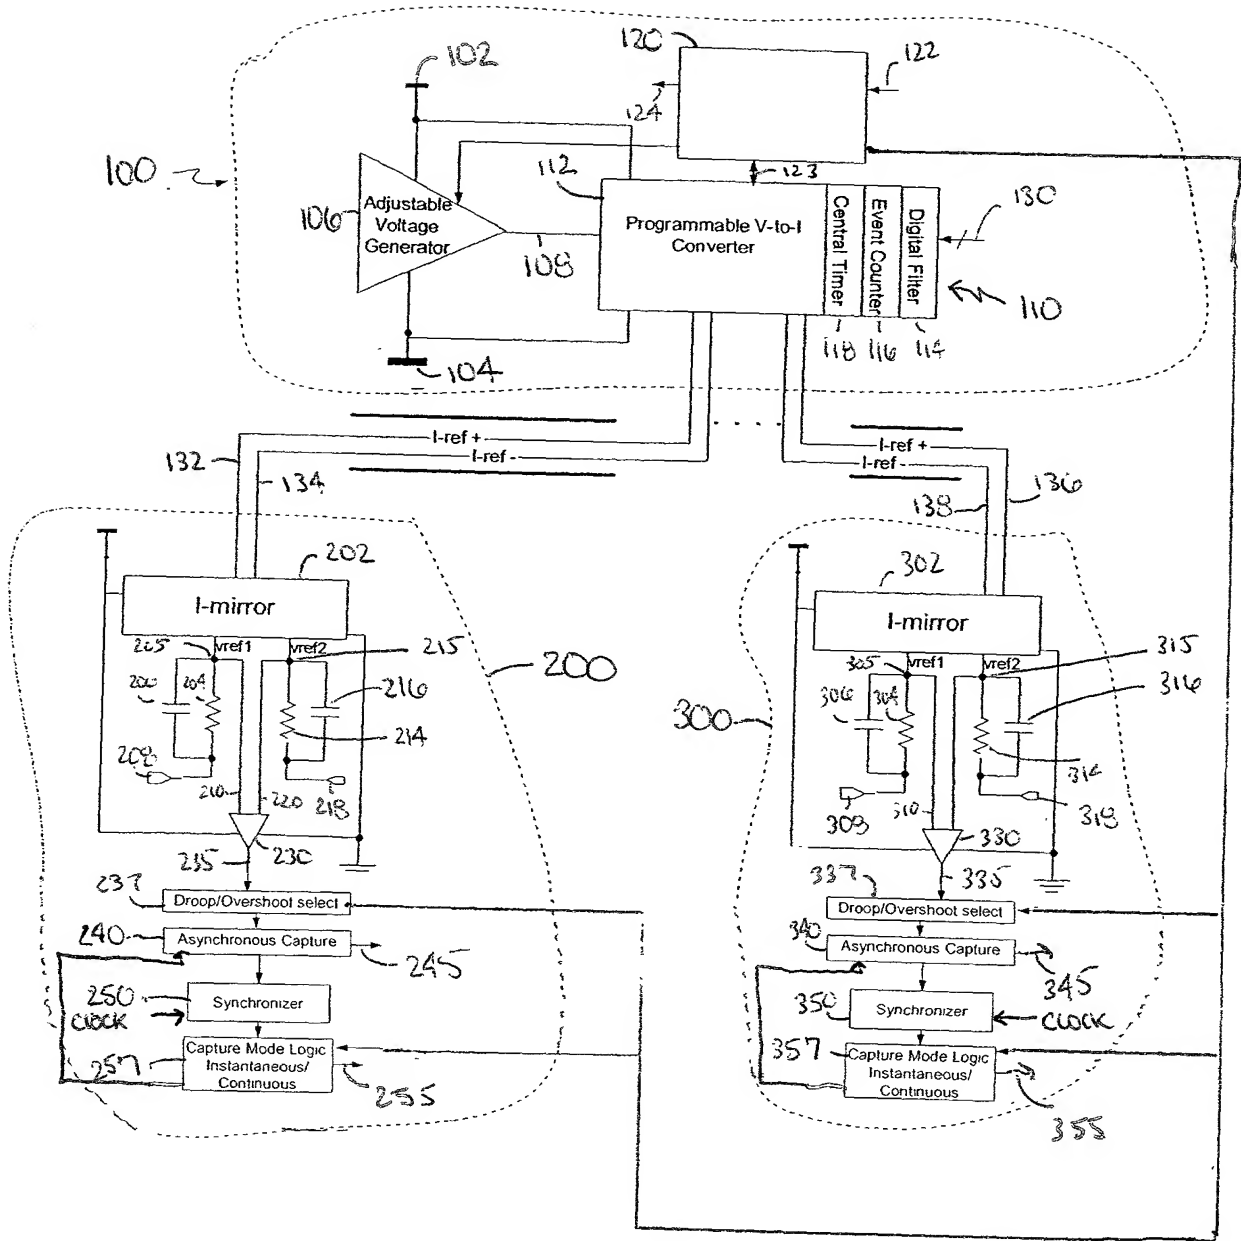 102
120
122
124
100
106
Adjustable
Voltage
Generator
108
112
123
Programmable V-to-I
Converter
Central Timer
Event Counter
Digital Filter
130
110
118
116
114
104
I-ref +
I-ref -
I-ref +
I-ref -
132
134
136
138
202
I-mirror
205
vref1
vref2
215
206
204
216
214
208
218
210
220
200
235
230
237
Droop/Overshoot select
240
Asynchronous Capture
245
250
CLOCK
Synchronizer
257
Capture Mode Logic
Instantaneous/
Continuous
255
302
I-mirror
305
vref1
vref2
315
306
304
316
314
308
318
310
300
330
335
337
Droop/Overshoot select
340
Asynchronous Capture
345
350
Synchronizer
CLOCK
357
Capture Mode Logic
Instantaneous/
Continuous
355